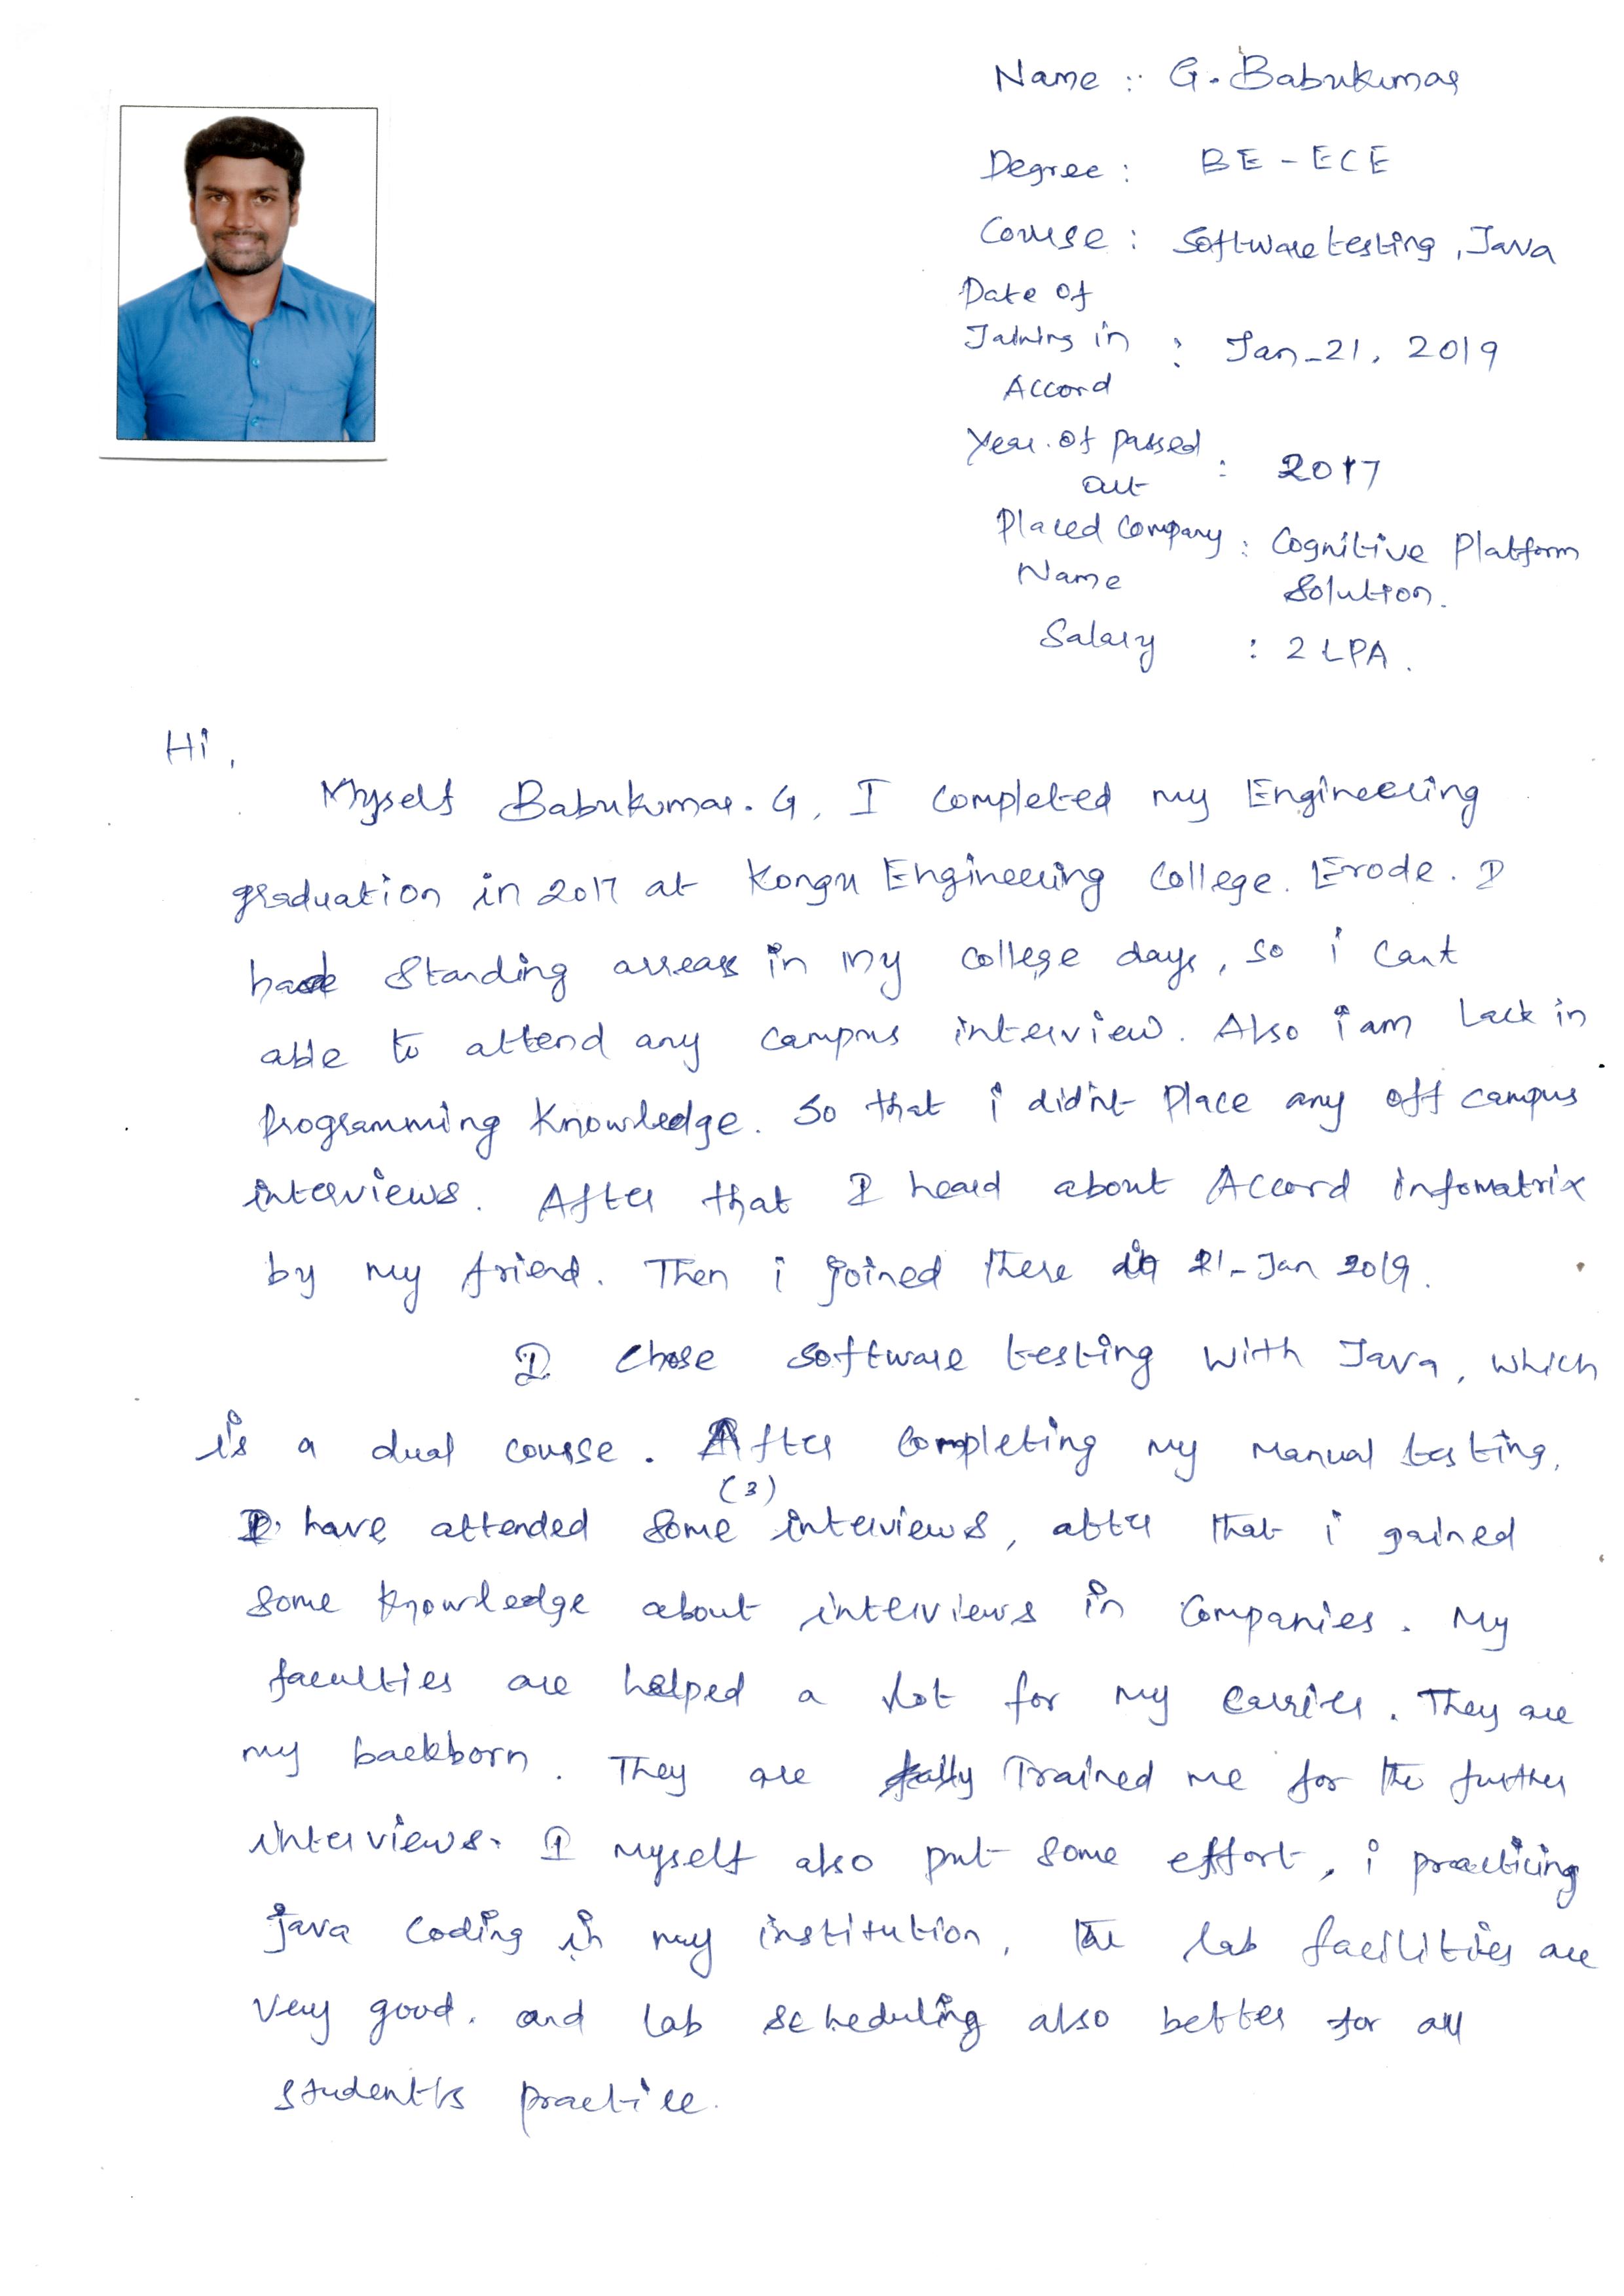 Name : G. Babukumar
Degree : BE - ECE
Course : Software testing, Java
Date of
Joining in : Jan-21, 2019
Accord
Year of passed : 2017
out
Placed Company : Cognitive Platform
Name Solution.
Salary : 2 LPA.
Hi,
Myself Babukumar. G, I completed my Engineering
graduation in 2017 at Kongu Engineering College. Erode. I
had standing arrears in my college days, so i cant
able to attend any campus interview. Also i am Lack in
Programming knowledge. So that i didn't place any off campus
interviews. After that I heard about Accord infomatrix
by my friend. Then i joined there in 21-Jan 2019.
I chose software testing with Java, which
is a dual course. After Completing my Manual testing,
(3)
I have attended some interviews, after that i gained
some knowledge about interviews in Companies. My
faculties are helped a lot for my carrier. They are
my backborn. They are Trained me for the further
interviews. I myself also put some effort, i practicing
java coding in my institution, The lab facilities are
very good. and lab scheduling also better for all
students practice.